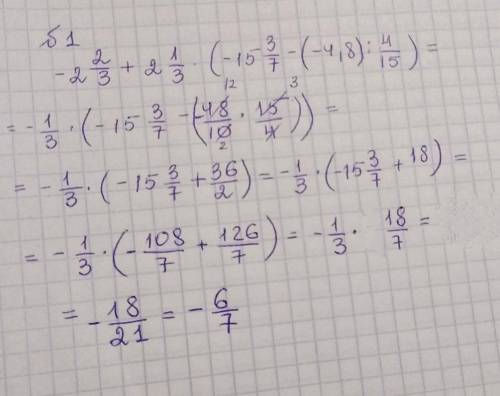 б1
-2 2/3 + 2 1/3 · (-15 3/7 - (-4,8) : 4/15) =
= -1/3 · (-15 3/7 - (-48/10 · 15/4)) = 12 2 3
= -1/3 · (-15 3/7 + 36/2) = -1/3 · (-15 3/7 + 18) =
= -1/3 · (-108/7 + 126/7) = -1/3 · 18/7 =
= -18/21 = -6/7